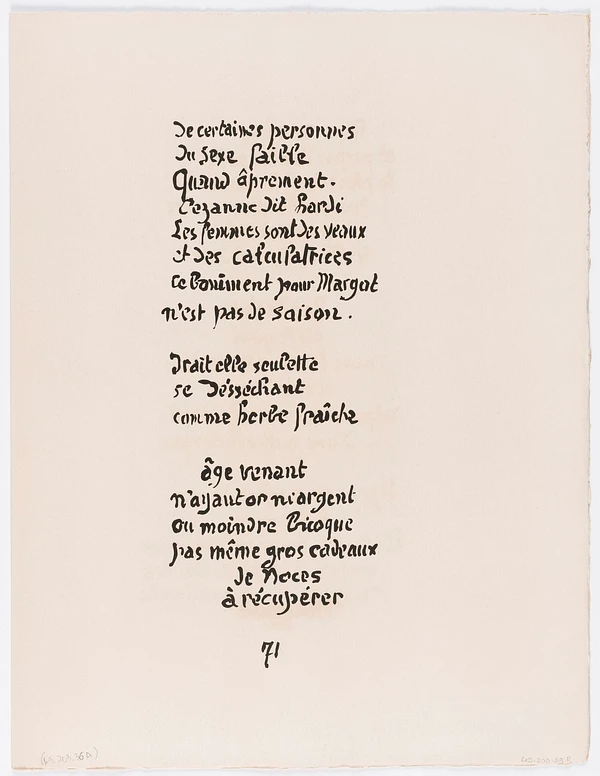 De certaines personnes
Du sexe faible
Quand âprement.
Cezanne dit hardi
Les femmes sont des veaux
et des calculatrices
ce boniment pour Margot
n'est pas de saison.
Irait elle seulette
se désséchant
comme herbe fraîche
âge venant
n'ayant or ni argent
ou moindre bicoque
pas même gros cadeaux
de Noces
à récupérer
71